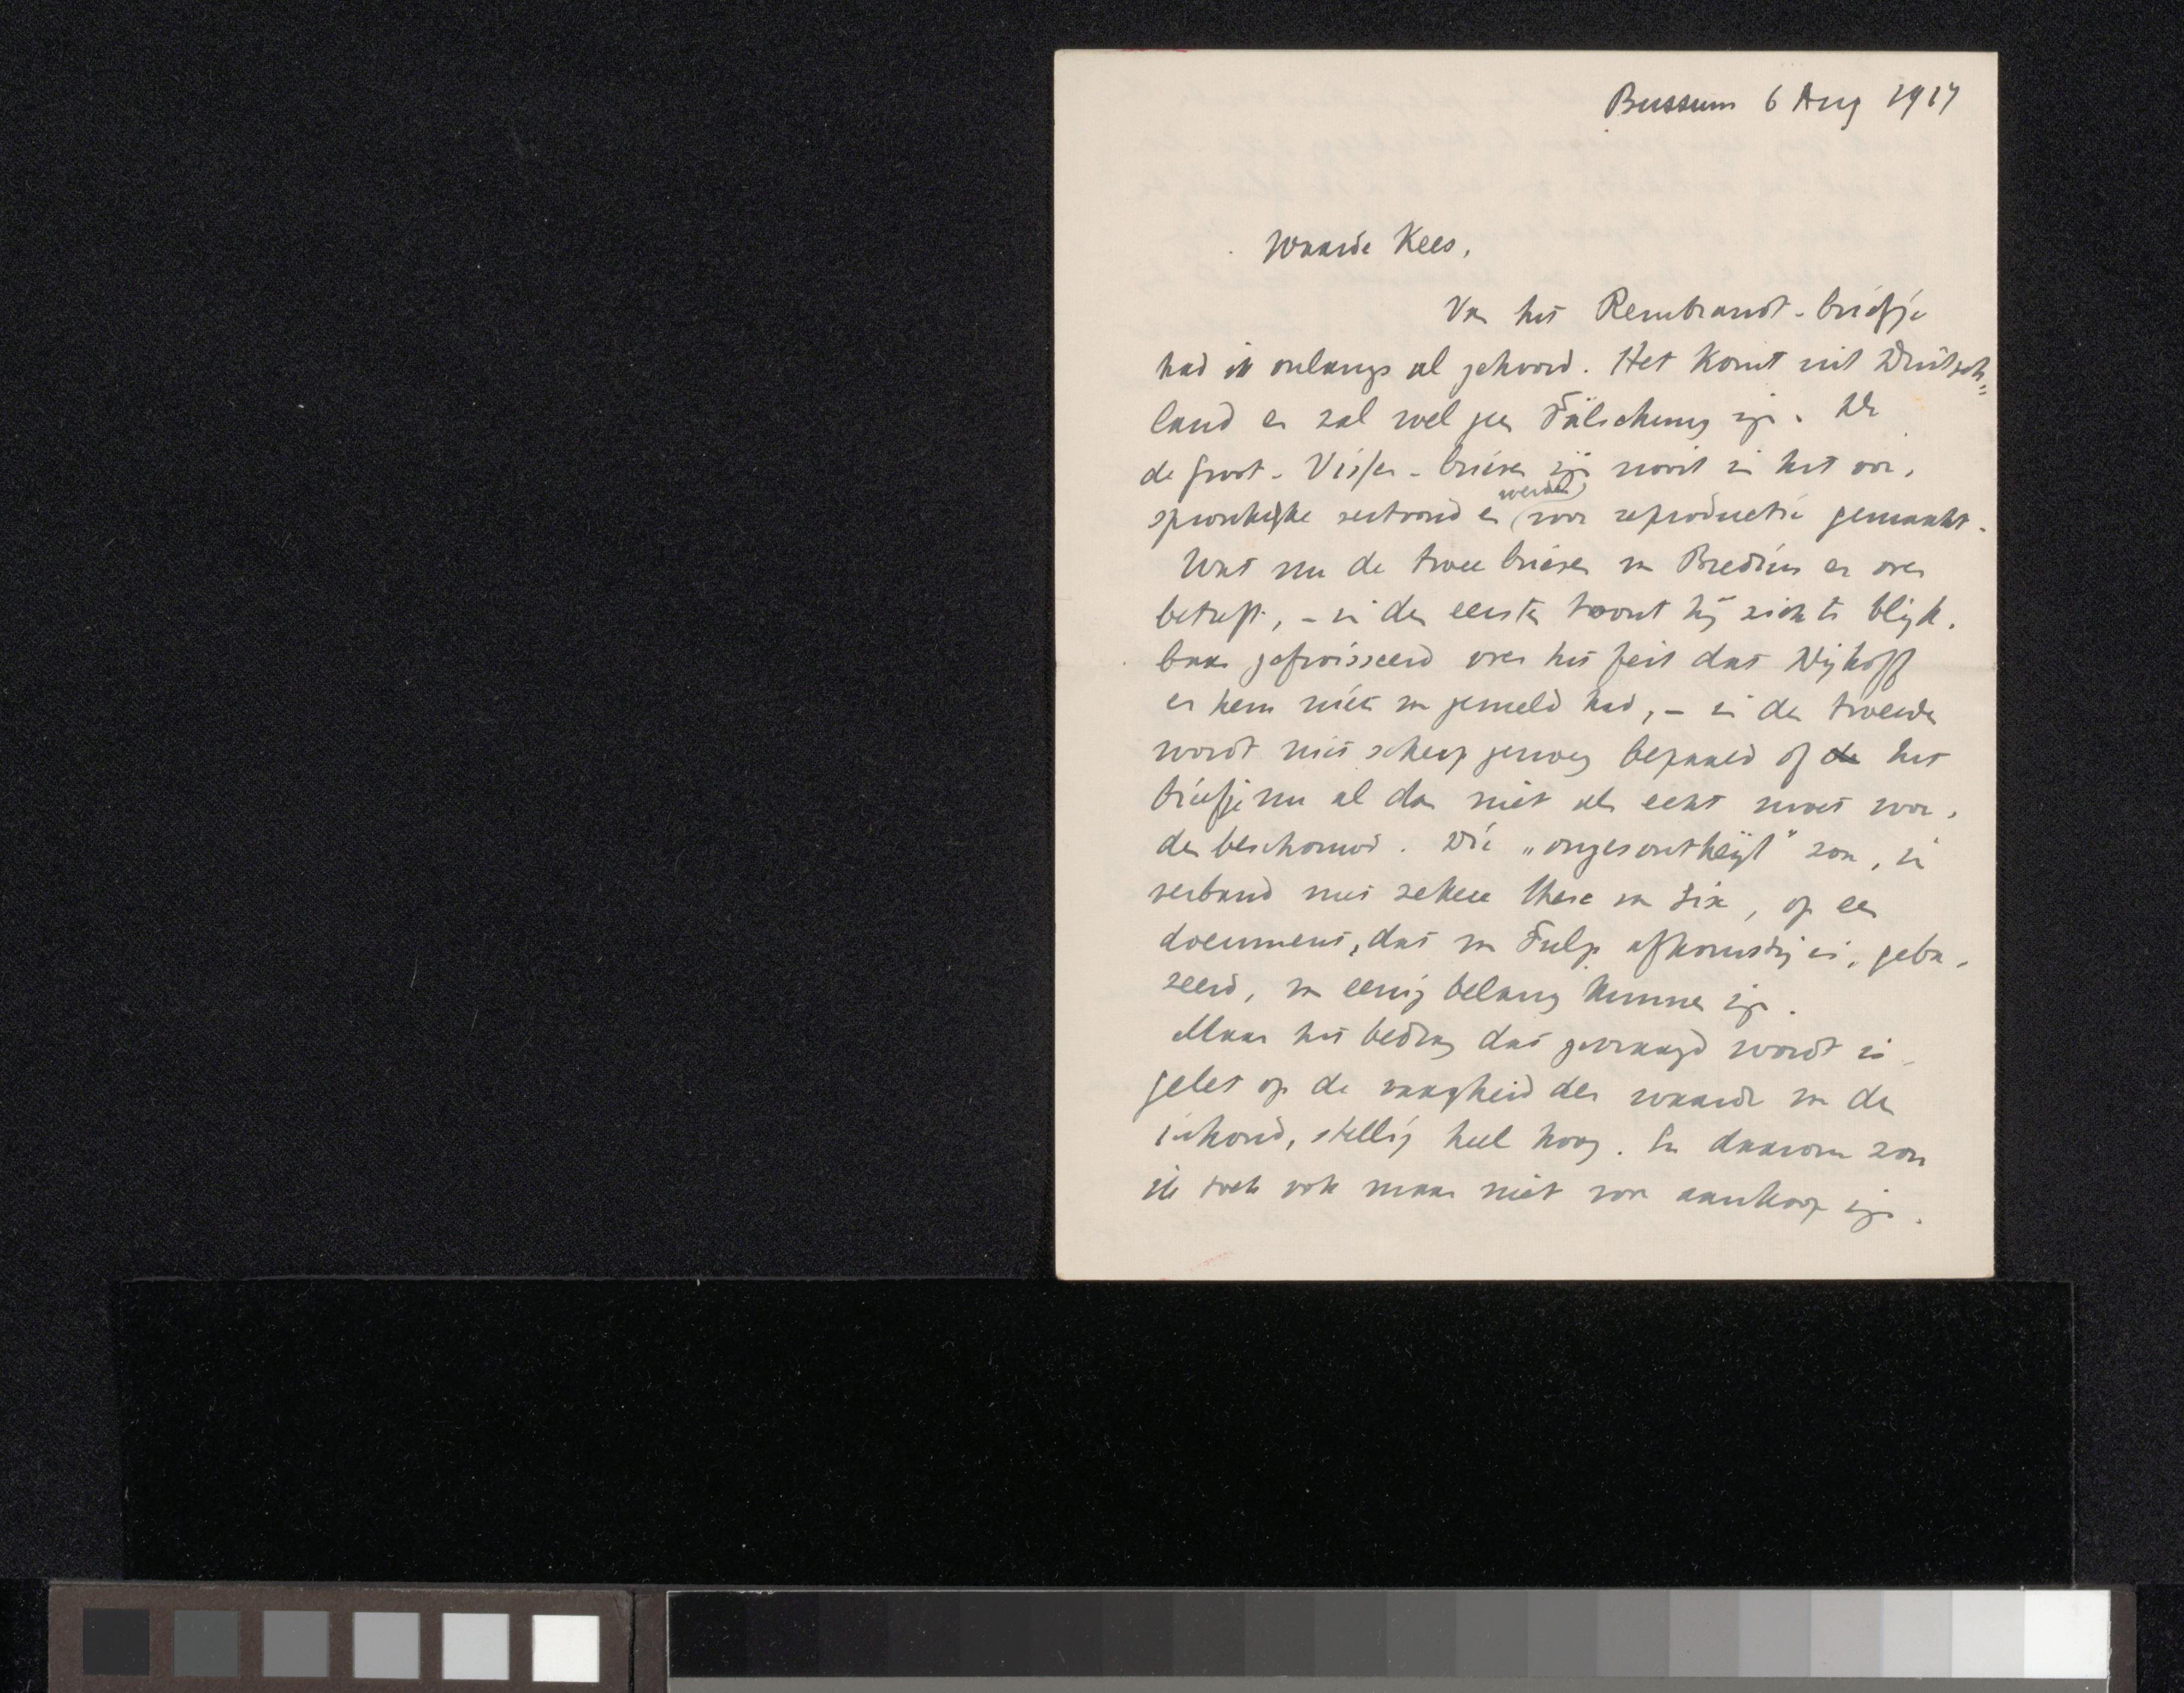 Bussum 6 Aug 1917
Waarde Kees,
Van het Rembrandt-briefje
had ik onlangs al gehoord. Het komt uit Duitsch-
land en zal wel geen Fälschung zijn. De
de Groot-Visser-brieven zijn nooit in het oor-
spronkelijke vertoond en (werden) voor reproductie gemaakt.
Wat nu de twee brieven van Bredius er over
betreft, - in den eersten toont hij zich te blijk-
baar gefroisseerd over het feit dat Nijhoff
er hem niet van gemeld had, - in den tweeden
wordt niet scherp genoeg bepaald of de het
briefje nu al dan niet als echt moet wor-
den beschouwd. Die „ongesontheijt" zou, in
verband met zekere these van Six, op een
document, dat van Tulp afkomstig is, geba-
seerd, van eenig belang kunnen zijn.
Maar het bedrag dat gevraagd wordt is
gelet op de vaagheid der waarde van den
inhoud, stellig heel hoog. En daarom zou
ik toch ook maar niet voor aankoop zijn.